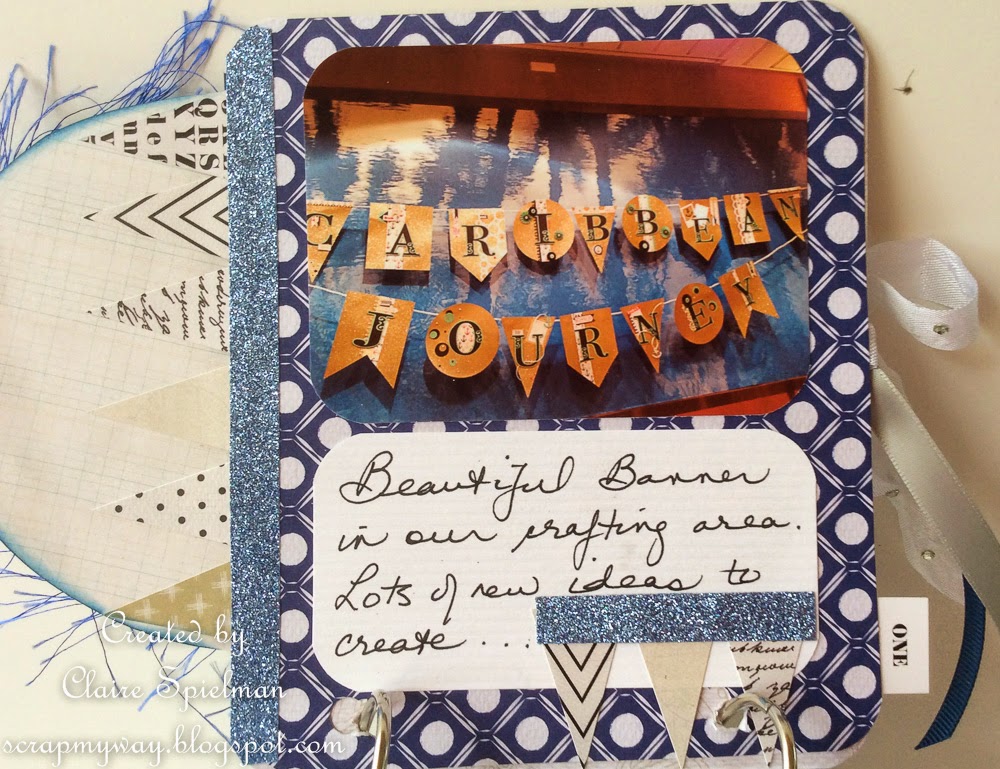 CARIBBEAN
JOURNEY
Beautiful Banner
in our crafting area.
Lots of new ideas to
create ...
ONE
QRS
XYZ
def
Created by
Claire Spielman
scrapmyway.blogspot.com